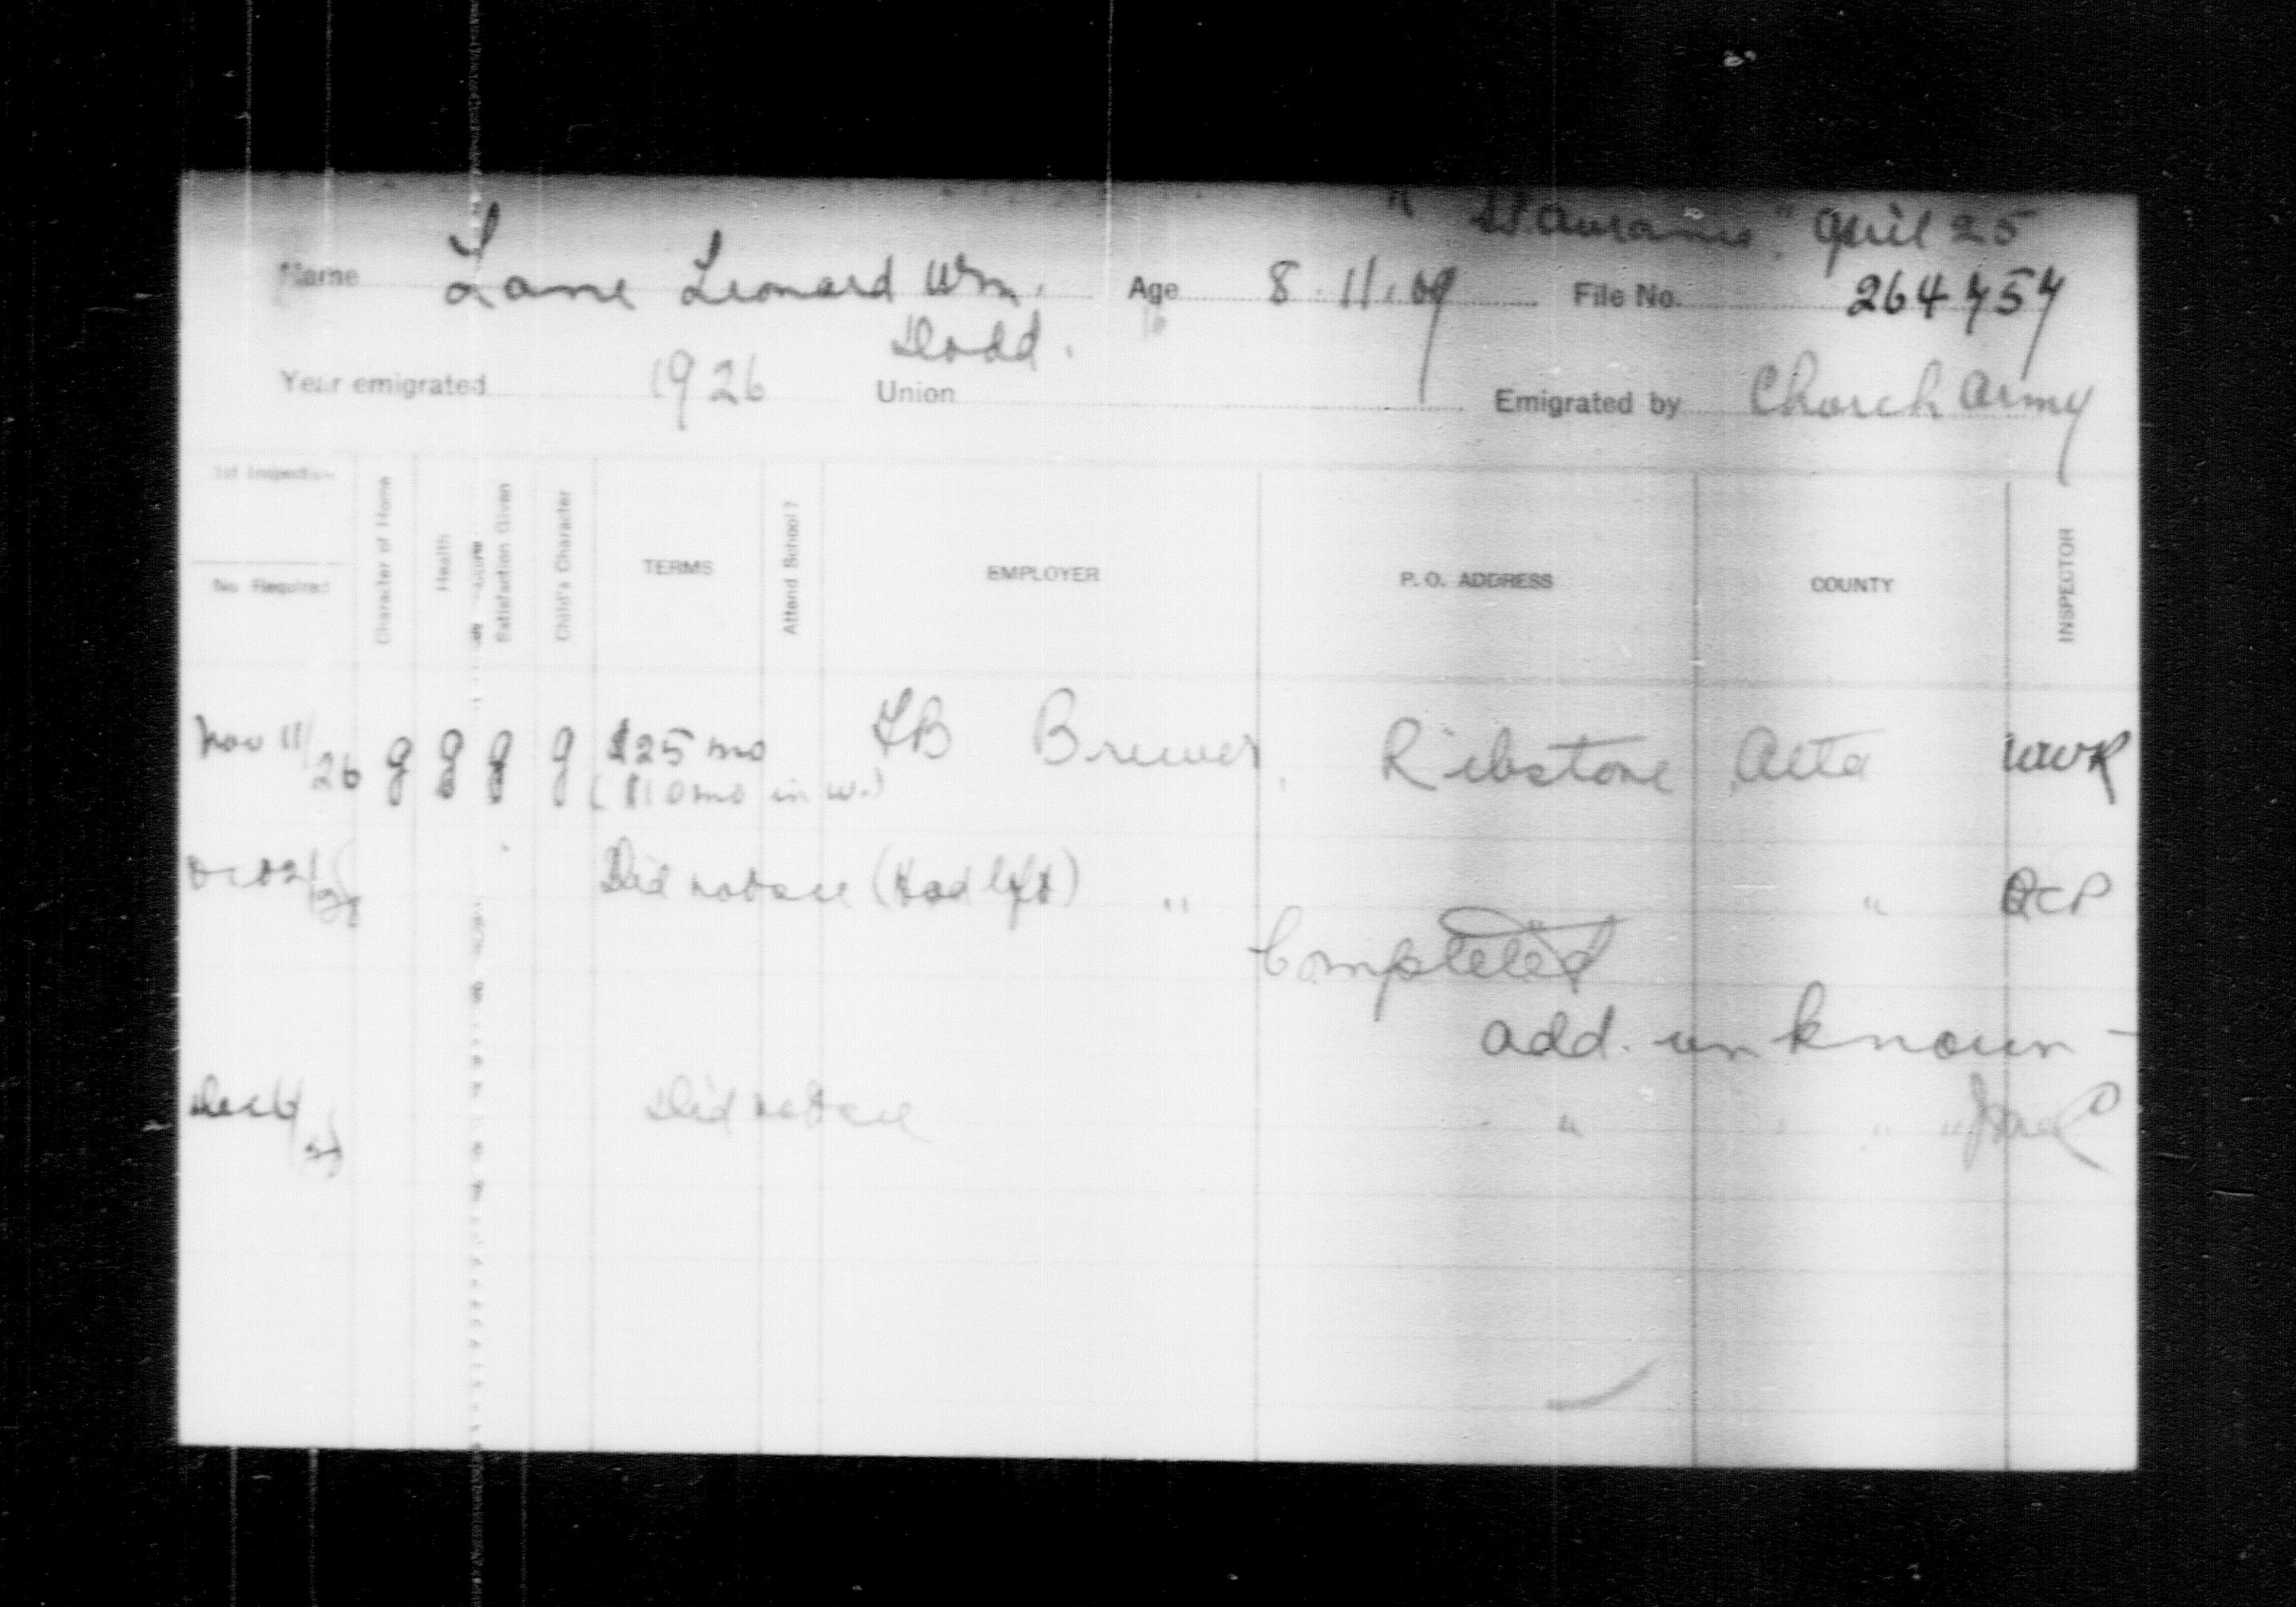 " April 25
Name Lane Leonard Wm. Age 8.11.09 File No. 264757
16
Dodd.
Year emigrated 1926 Union Emigrated by Church Army
1st Inspection
No. Required
Character of Home
Health
Satisfaction Given
Child's Character
TERMS
Attend School?
EMPLOYER
P. O. ADDRESS
COUNTY
INSPECTOR
Nov 11/26 g g g g $25 mo Brewer, Ribstone Alta
($10 mo in w.)
Did not see (Had left) " " "
Completed
add. unknown -
Did not see " " "